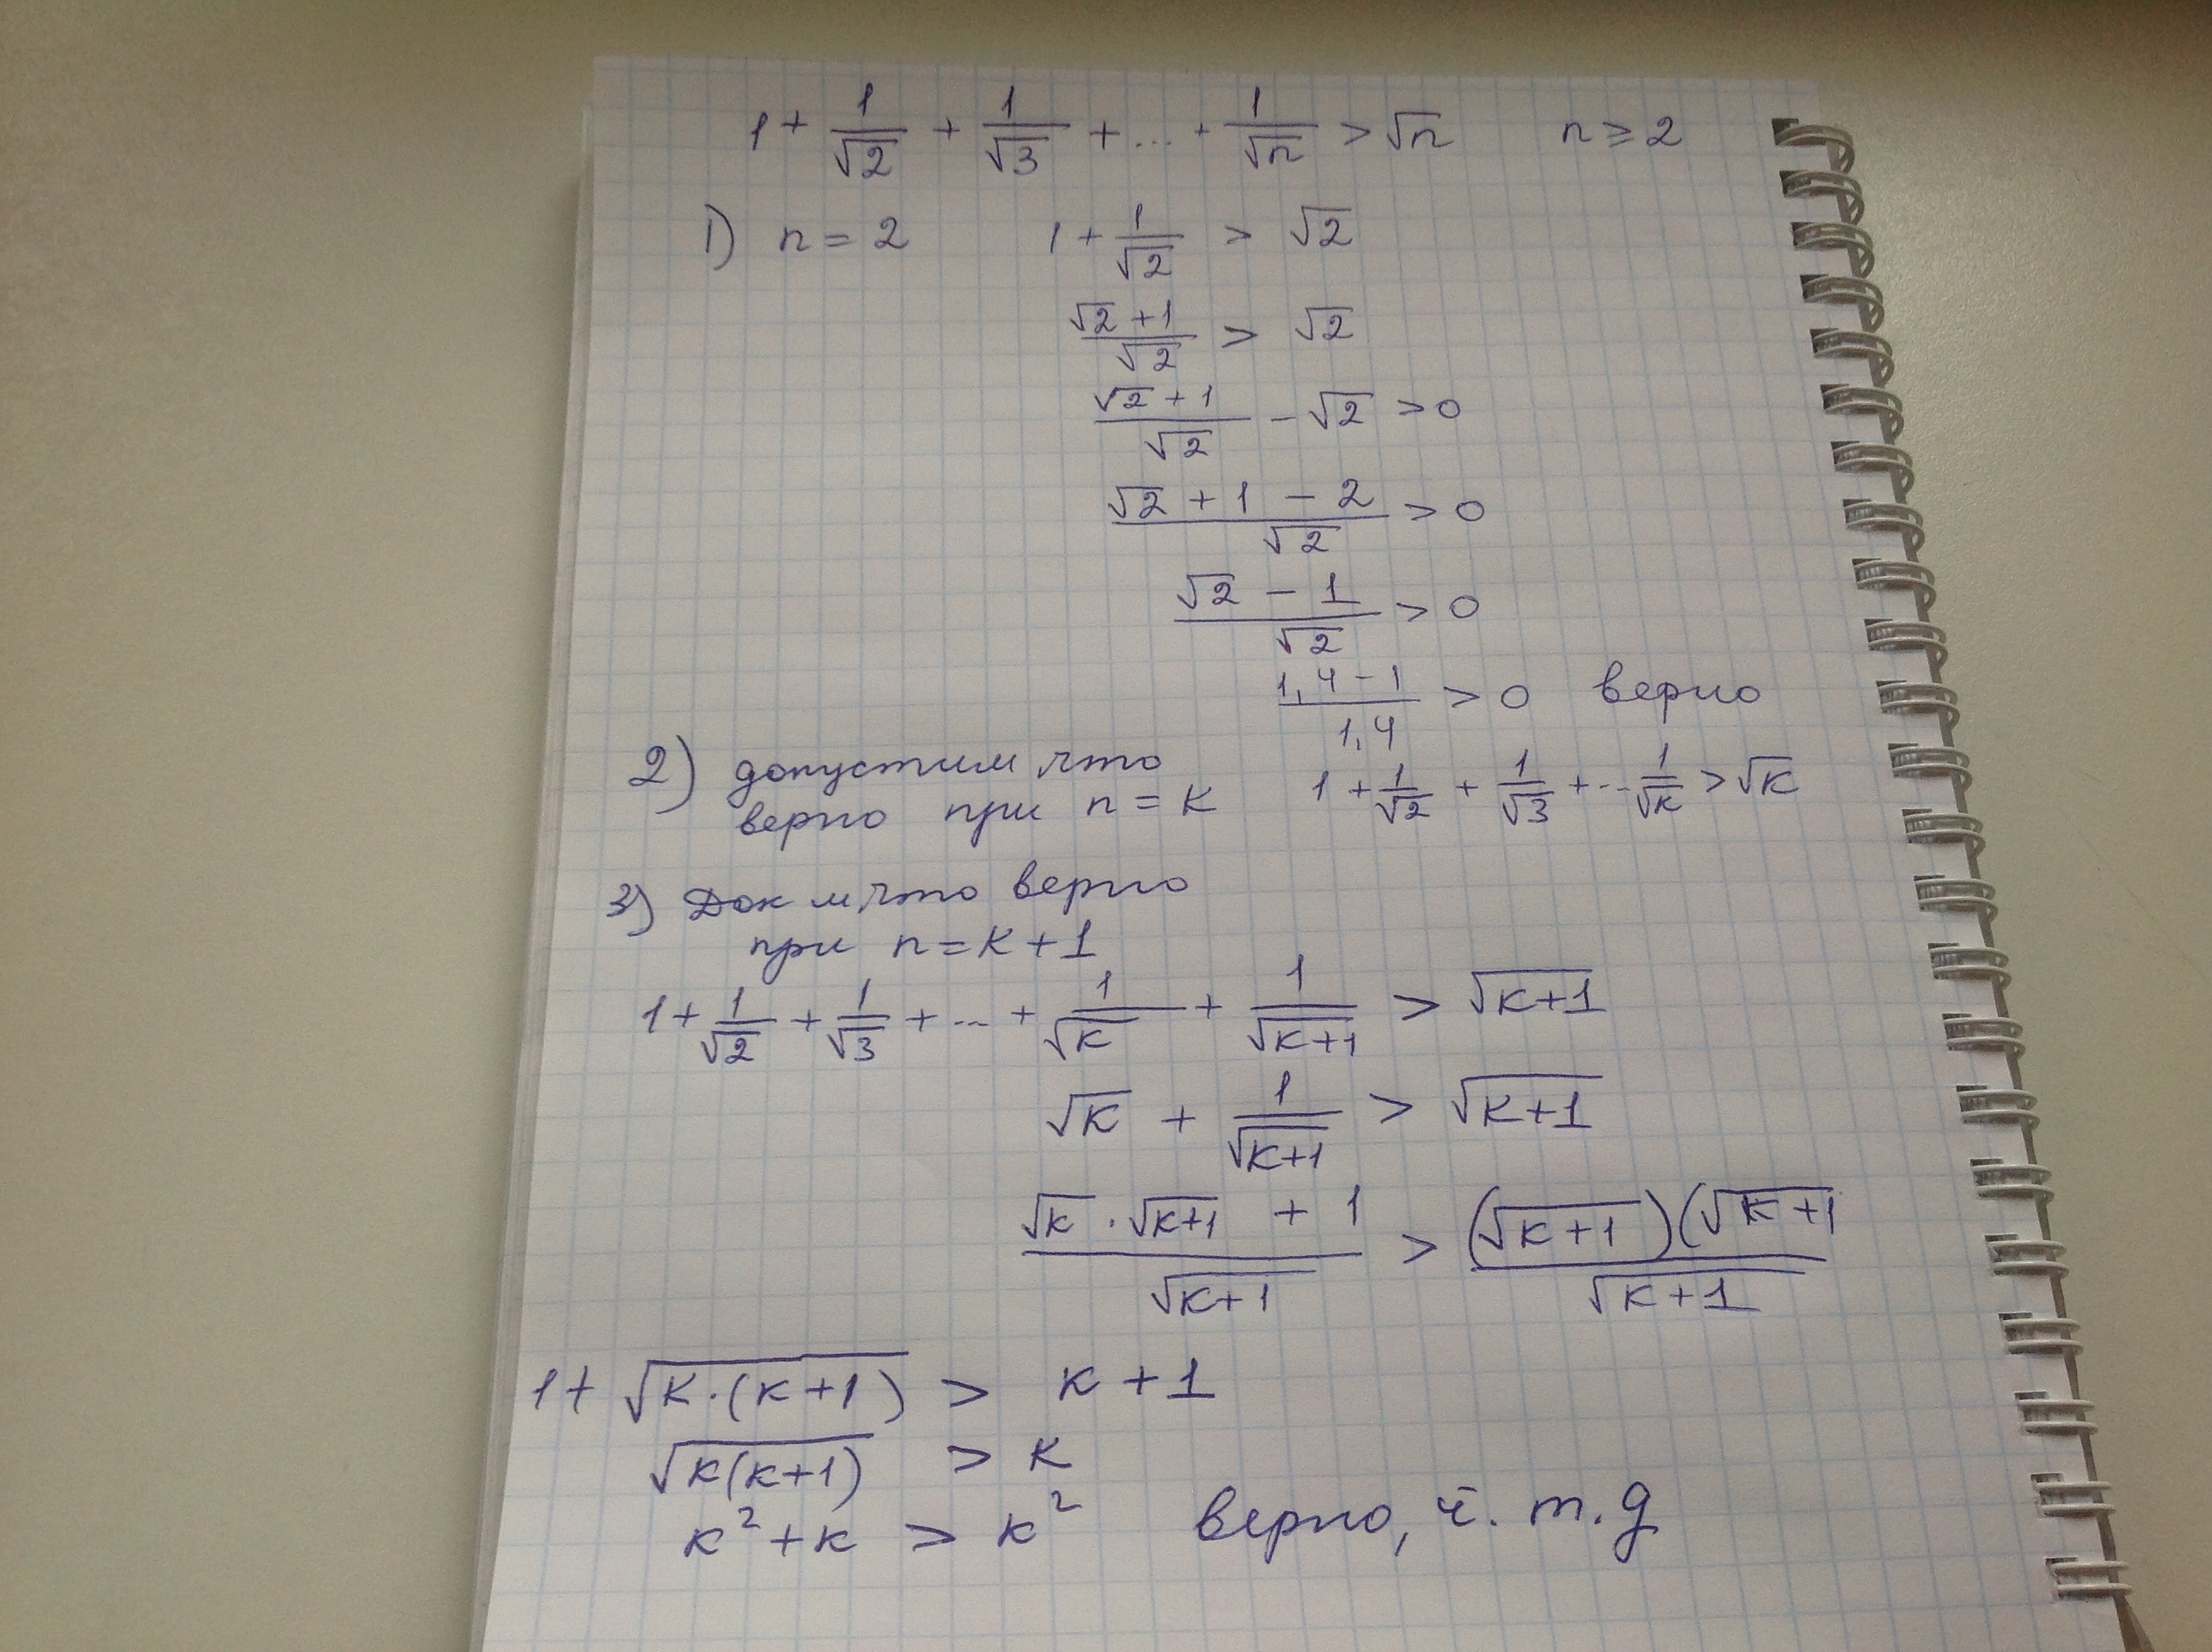 1 + 1/√2 + 1/√3 + ... + 1/√n > √n    n ≥ 2
1) n = 2    1 + 1/√2 > √2
(√2 + 1)/√2 > √2
(√2 + 1)/√2 - √2 > 0
(√2 + 1 - 2)/√2 > 0
(√2 - 1)/√2 > 0
(1,4 - 1)/1,4 > 0 верно
2) допустим, что    1 + 1/√2 + 1/√3 + ... 1/√k > √k
верно при n = k
3) Док м, что верно
при n = k + 1
1 + 1/√2 + 1/√3 + ... + 1/√k + 1/√(k+1) > √(k+1)
√k + 1/√(k+1) > √(k+1)
(√k · √(k+1) + 1)/√(k+1) > (√(k+1))(√(k+1)/√(k+1)
1 + √(k·(k+1)) > k + 1
√(k(k+1)) > k
k² + k > k²    верно, ч. т. д